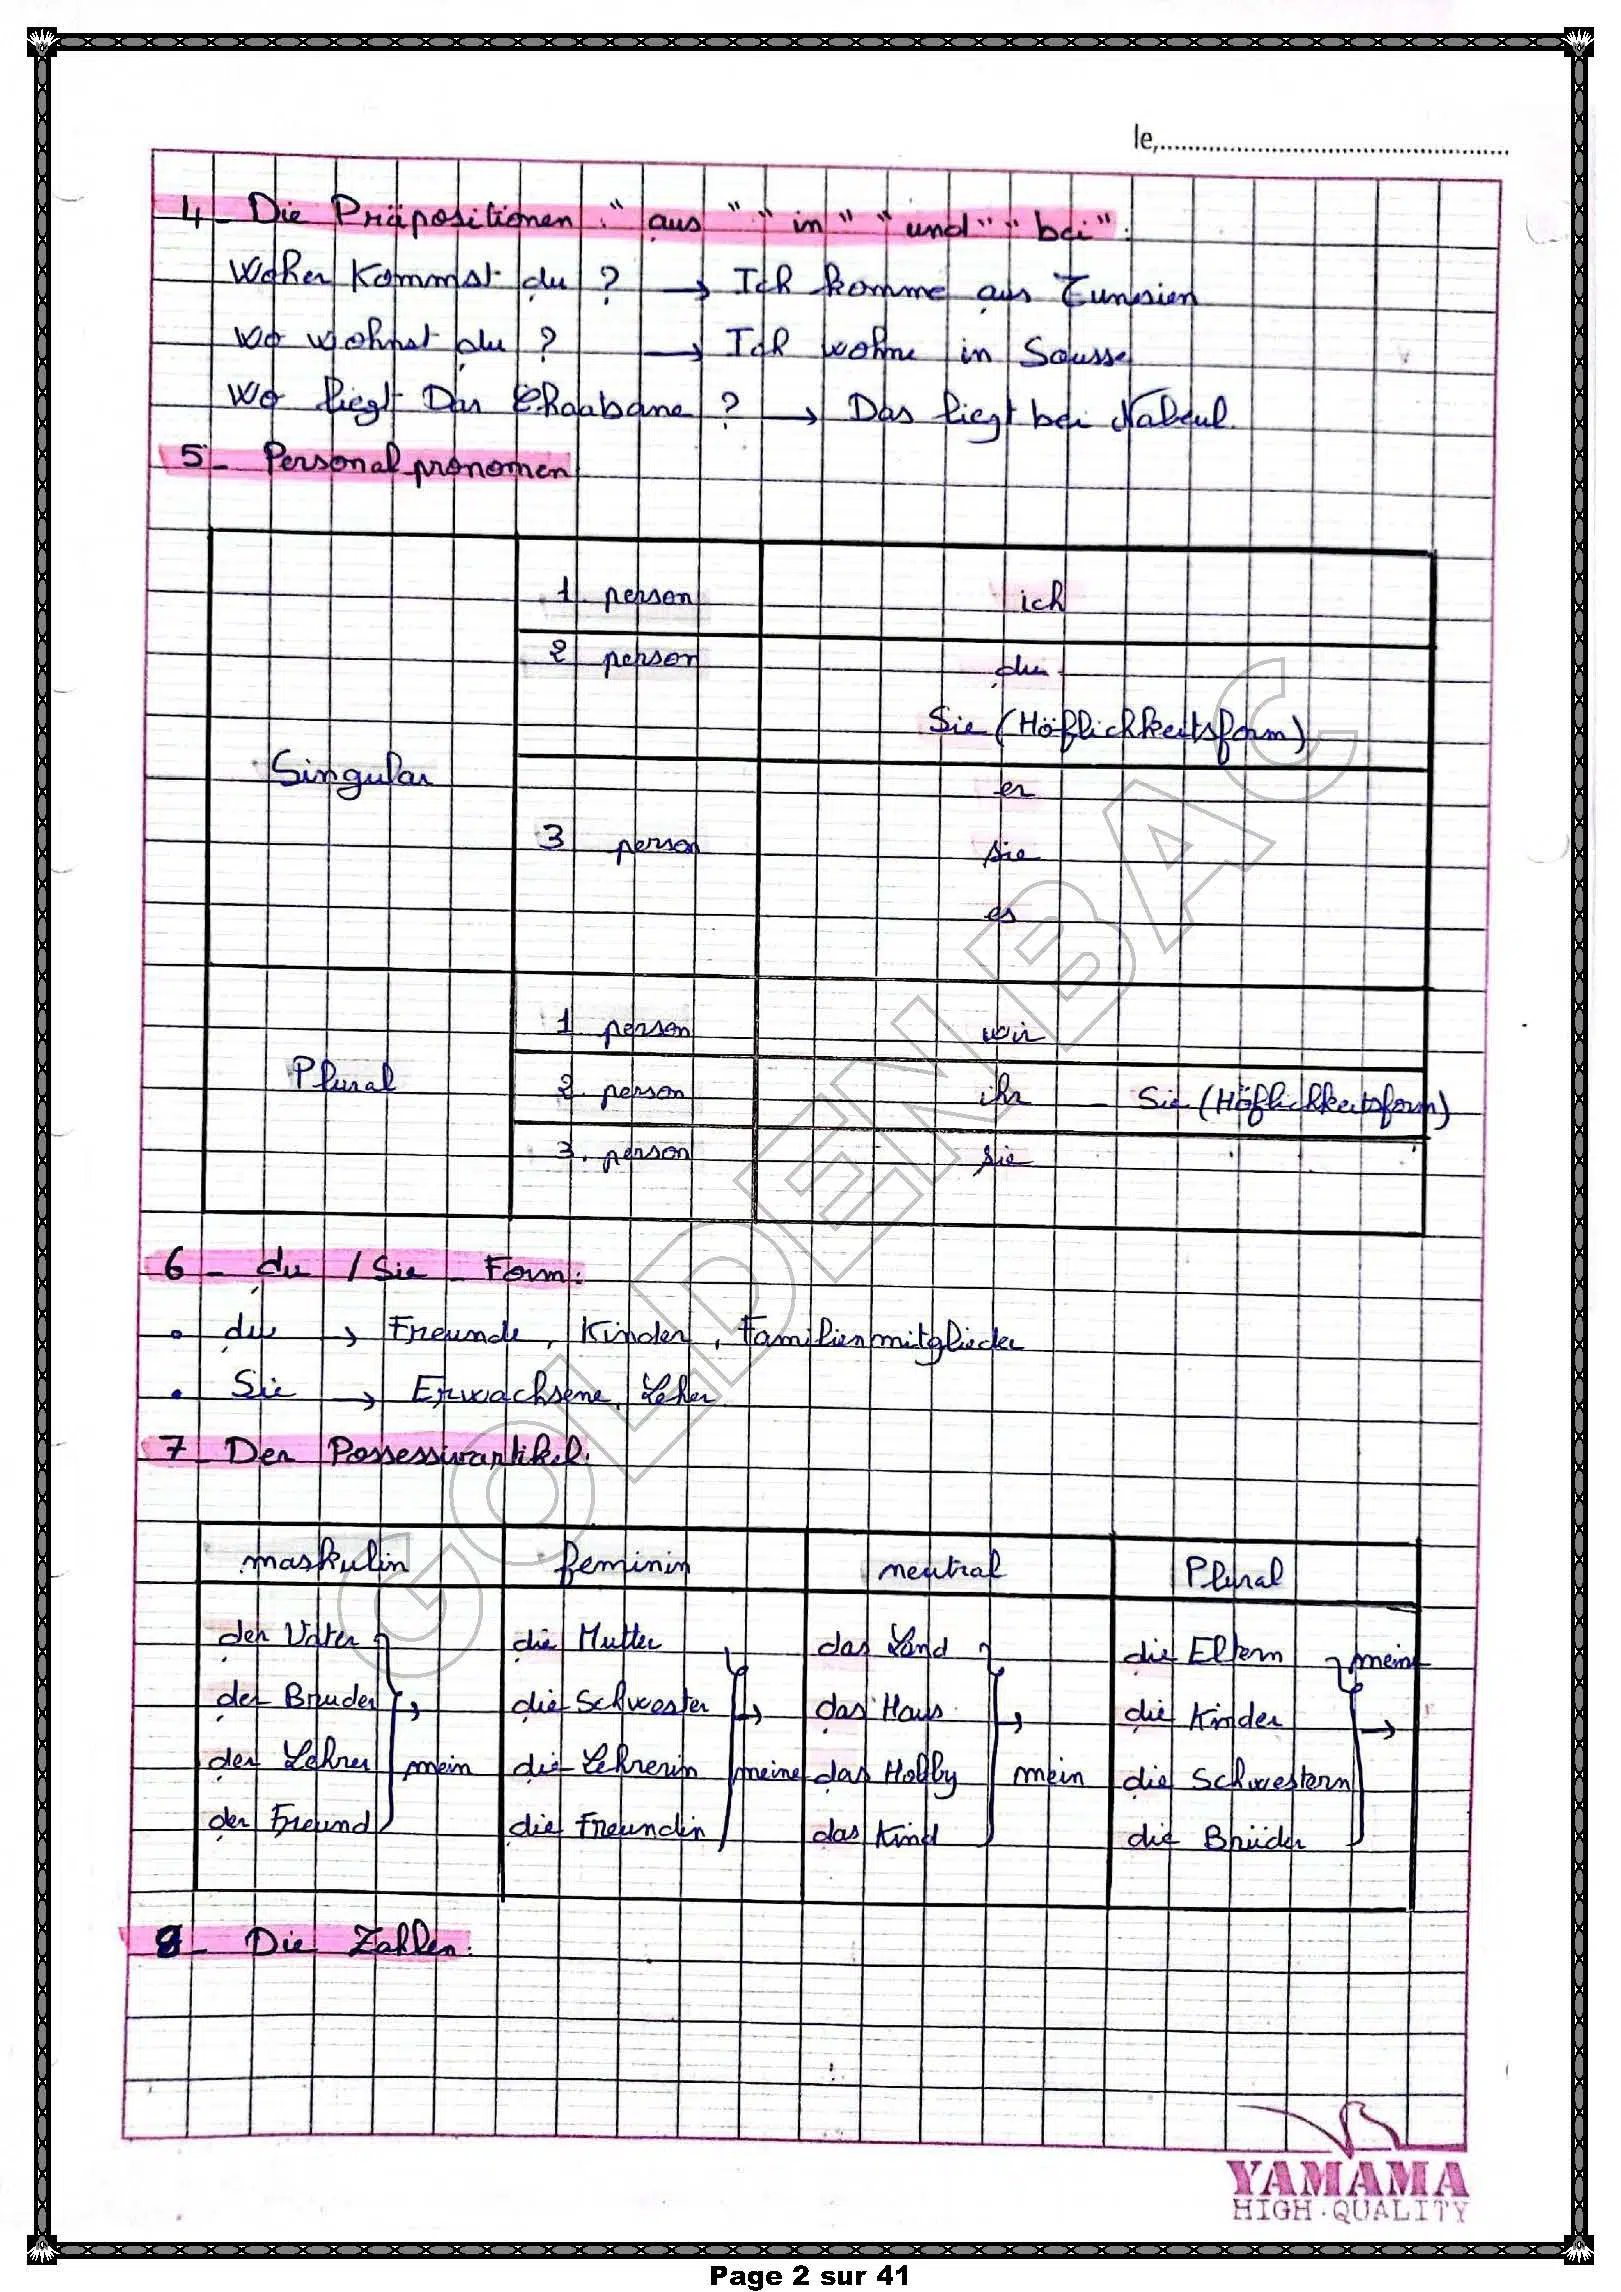 le,
4 - Die Präpositionen : "aus" "in" "und" "bei".
Woher Kommst du ? → Ich komme aus Tunesien
Wo wohnst du ? → Ich wohne in Sousse
Wo liegt Dar Chaabane ? → Das liegt bei Nabeul.
5 - Personalpronomen
1. person ich
2 person du
Sie (Höflichkeitsform)
Singular er
3 person sie
es
1 person wir
Plural 2. person ihr - Sie (Höflichkeitsform)
3. person sie
6 - du / Sie - Form :
• du → Freunde, Kinder, Familienmitglieder
• Sie → Erwachsene, Leher
7 - Der Possessivartikel.
maskulin feminin neutral Plural
der Vater die Mutter das Land die Eltern meine
der Bruder → die Schwester → das Haus → die Kinder →
der Lehrer mein die Lehrerin meine das Hobby mein die Schwestern
der Freund die Freundin das Kind die Brüder
8 - Die Zahlen.
GOLDEN BAC
YAMAMA
HIGH·QUALITY
Page 2 sur 41